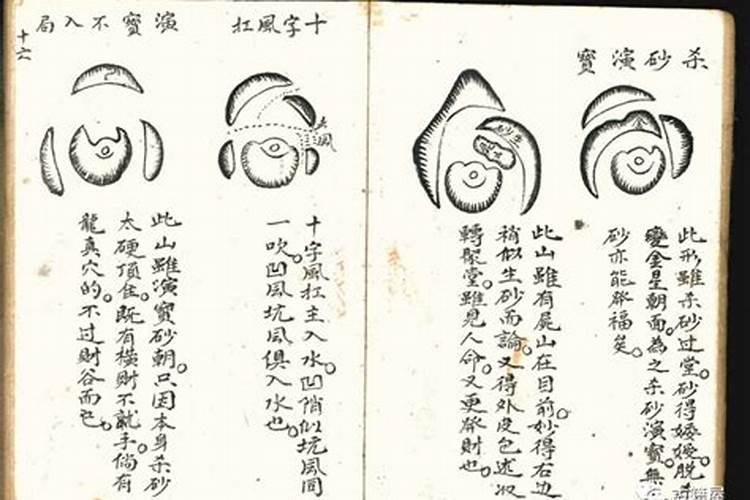 杀砂演寳
此形雖杀砂过堂。砂得
變金星朝面。為之杀砂演寳。無
砂亦能發福矣。
金
此山雖有屍山在目前。妙得右边
稍似生砂而論。又得外皮包
轉聚堂。雖見人命。又更發財也。
十字風扛
十字風扛主入水。凹俏似坑風同
一吹。凹風坑風俱入水也。
凹風
演寳不入局
十六
此山雖演寳砂朝。只因本身杀砂
太硬頂住。既有橫財不就手。倘有
龍真穴的。不过財谷而已。